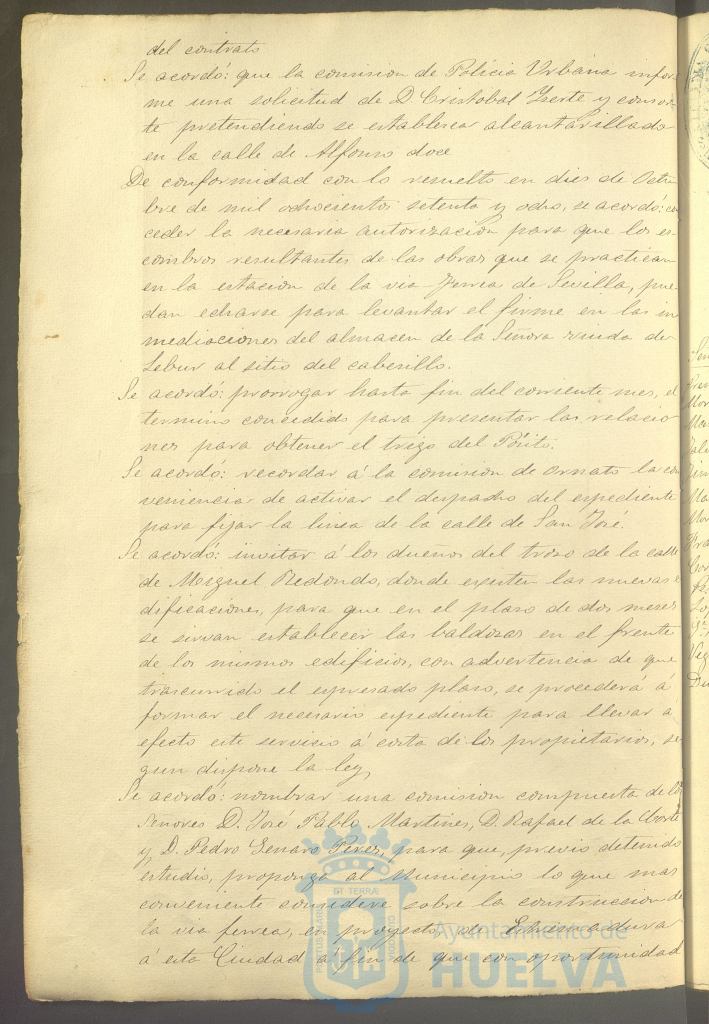 del contrato
Se acordó: que la comision de Policia Urbana infor
me una solicitud de D Cristobal Yserte y consor
te pretendiendo se establezca alcantarillado
en la calle de Alfonso doce
De conformidad con lo resuelto en dies de Octu
bre de mil ochocientos setenta y ocho, se acordó: con
ceder la necesaria autorizacion para que los es
combros resultantes de las obras que se practican
en la estacion de la via ferrea de Sevilla, pue
dan echarse para levantar el firme en las in
mediaciones del almacen de la Señora viuda de
al sitio del cabesillo.
Se acordó: prorrogar hasta fin del corriente mes, el
termino concedido para presentar las relacio
nes para obtener el trigo del Pósito.
Se acordó: recordar á la comision de ornato la con
veniencia de activar el despacho del espediente
para fijar la linea de la calle de San José.
Se acordó: invitar á los dueños del troso de la calle
de Miguel Redondo, donde existen las nuevas e
dificaciones, para que en el plaso de dos meses
se sirvan establecer las baldosas en el frente
de los mismos edificios, con advertencia de que
trascurrido el espresado plaso, se procederá á
formar el necesario espediente para llevar á
efecto este servicio á costa de los propietarios, se
gun dispone la ley,
Se acordó: nombrar una comision compuesta de los
Señores D. José Pablo Martines, D. Rafael de la Corte
y D. Pedro Genaro Peres, para que, previo detenido
estudio, proponga al Municipio lo que mas
conveniente considere sobre la construccion de
la via ferrea, en proyecto, de Estremadura
á esta Ciudad á fin de que con oportunidad
Ayuntamiento de
HUELVA